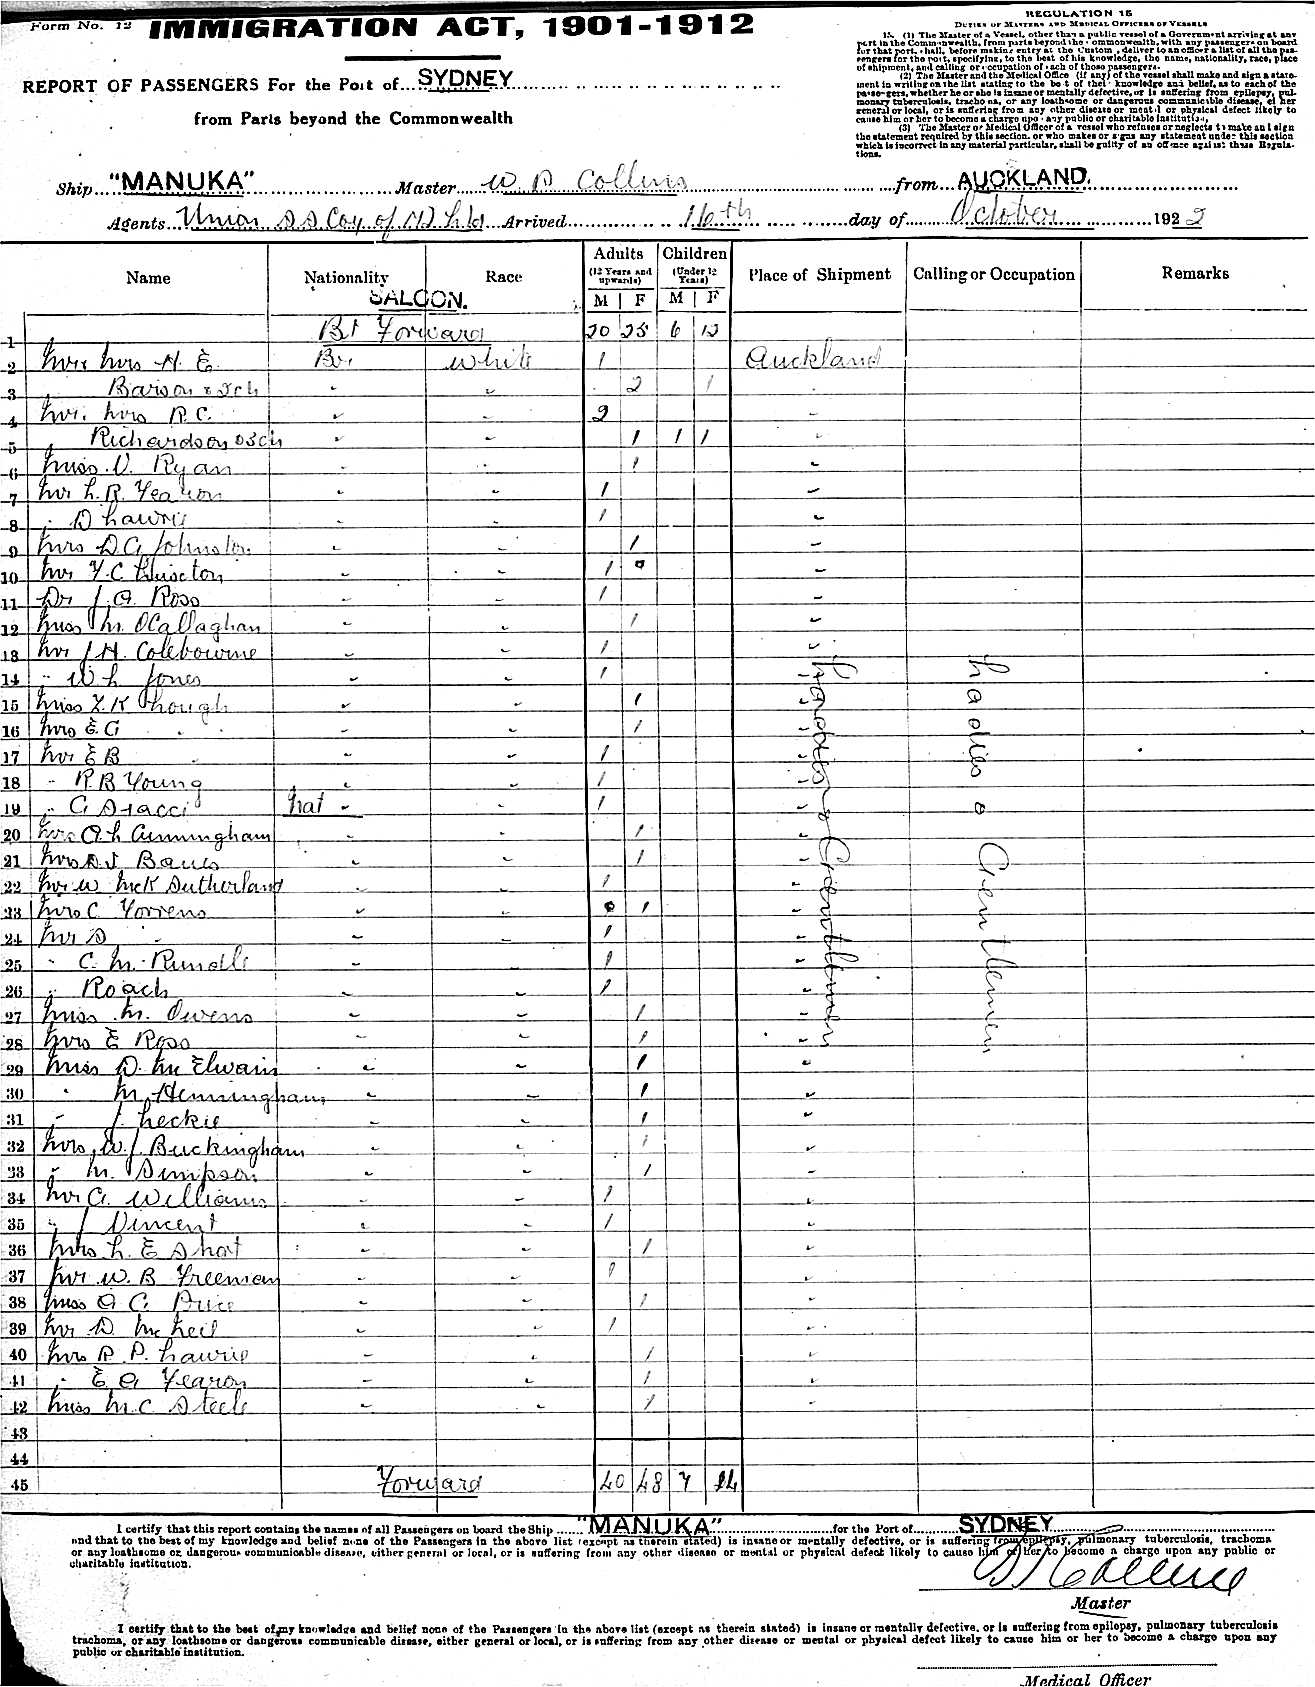 Form No. 12
IMMIGRATION ACT, 1901-1912
REPORT OF PASSENGERS For the Port of SYDNEY
from Parts beyond the Commonwealth
REGULATION 15
DUTIES OF MASTERS AND MEDICAL OFFICERS OF VESSELS
15. (1) The Master of a Vessel, other than a public vessel of a Government arriving at any
port in the Commonwealth, from parts beyond the Commonwealth, with any passengers on board
for that port, shall, before making entry at the Custom, deliver to an officer a list of all the pas-
sengers for the port, specifying, to the best of his knowledge, the name, nationality, race, place
of shipment, and calling or occupation of each of those passengers.
(2) The Master and the Medical Office (if any) of the vessel shall make and sign a state-
ment in writing on the list stating to the best of their knowledge and belief, as to each of the
passengers, whether he or she is insane or mentally defective, or is suffering from epilepsy, pul-
monary tuberculosis, trachoma, or any loathsome or dangerous communicable disease, either
general or local, or is suffering from any other disease or mental or physical defect likely to
cause him or her to become a charge upon any public or charitable institution.
(3) The Master or Medical Officer of a vessel who refuses or neglects to make and sign
the statement required by this section, or who makes or signs any statement under this section
which is incorrect in any material particular, shall be guilty of an offence against these Regula-
tions.
Ship "MANUKA" Master W D Collins from AUCKLAND.
Agents Union SS Coy of NZ Ltd Arrived 16th day of October 1922
Name Nationality Race Adults (12 Years and upwards) M F Children (Under 12 Years) M F Place of Shipment Calling or Occupation Remarks
SALOON.
1 Bt Forward 20 25 6 12
2 Mr & Mrs H. E. Br White 1 Auckland
3 Barson & Inch 2 1
4 Mr. Mrs R. C. 2
5 Richardson 1 1 1
6 Miss V. Ryan 1
7 Mr L. R. Fearon 1
8 " D Lawrie 1
9 Mrs D G Johnston 1
10 Mr F. C. 1
11 Dr J. A. Ross 1
12 Miss M. OCallaghan 1
13 Mr J H. Colebourne 1
14 " W L Jones 1
15 Miss Z. K Hough 1
16 Mrs E. G " 1
17 Mr E B 1
18 " R. B Young 1
19 " G Stacci Nat 1
20 Mrs A. L Cunningham 1
21 Mrs D. J 1
22 Mr W McK Sutherland 1
23 Mrs C Torrens 1
24 Mr S " 1
25 " C. M. Rundle 1
26 " Roach 1
27 Miss M. Owens 1
28 Mrs E Ross 1
29 Miss D. McElwain 1
30 " M. Henningham 1
31 " J Leckie 1
32 Mrs W. J Buckingham 1
33 " M. Simpson 1
34 Mr G. Williams 1
35 " J Vincent 1
36 Mrs L. E Short 1
37 Mr W. B Freeman 1
38 Miss A C. Price 1
39 Mr D McNeil 1
40 Mrs R P. Lawrie 1
41 " E A Fearon 1
42 Miss M. C Steele 1
43
44
45 Forward 40 48 7 14
Ladies & Gentlemen
Ladies & Gentlemen
I certify that this report contains the names of all Passengers on board the Ship "MANUKA" for the Port of SYDNEY
and that to the best of my knowledge and belief none of the Passengers in the above list (except as therein stated) is insane or mentally defective, or is suffering from epilepsy, pulmonary tuberculosis, trachoma
or any loathsome or dangerous communicable disease, either general or local, or is suffering from any other disease or mental or physical defect likely to cause him or her to become a charge upon any public or
charitable institution.
Collins
Master
I certify that to the best of my knowledge and belief none of the Passengers in the above list (except as therein stated) is insane or mentally defective, or is suffering from epilepsy, pulmonary tuberculosis
trachoma, or any loathsome or dangerous communicable disease, either general or local, or is suffering from any other disease or mental or physical defect likely to cause him or her to become a charge upon any
public or charitable institution.
Medical Officer